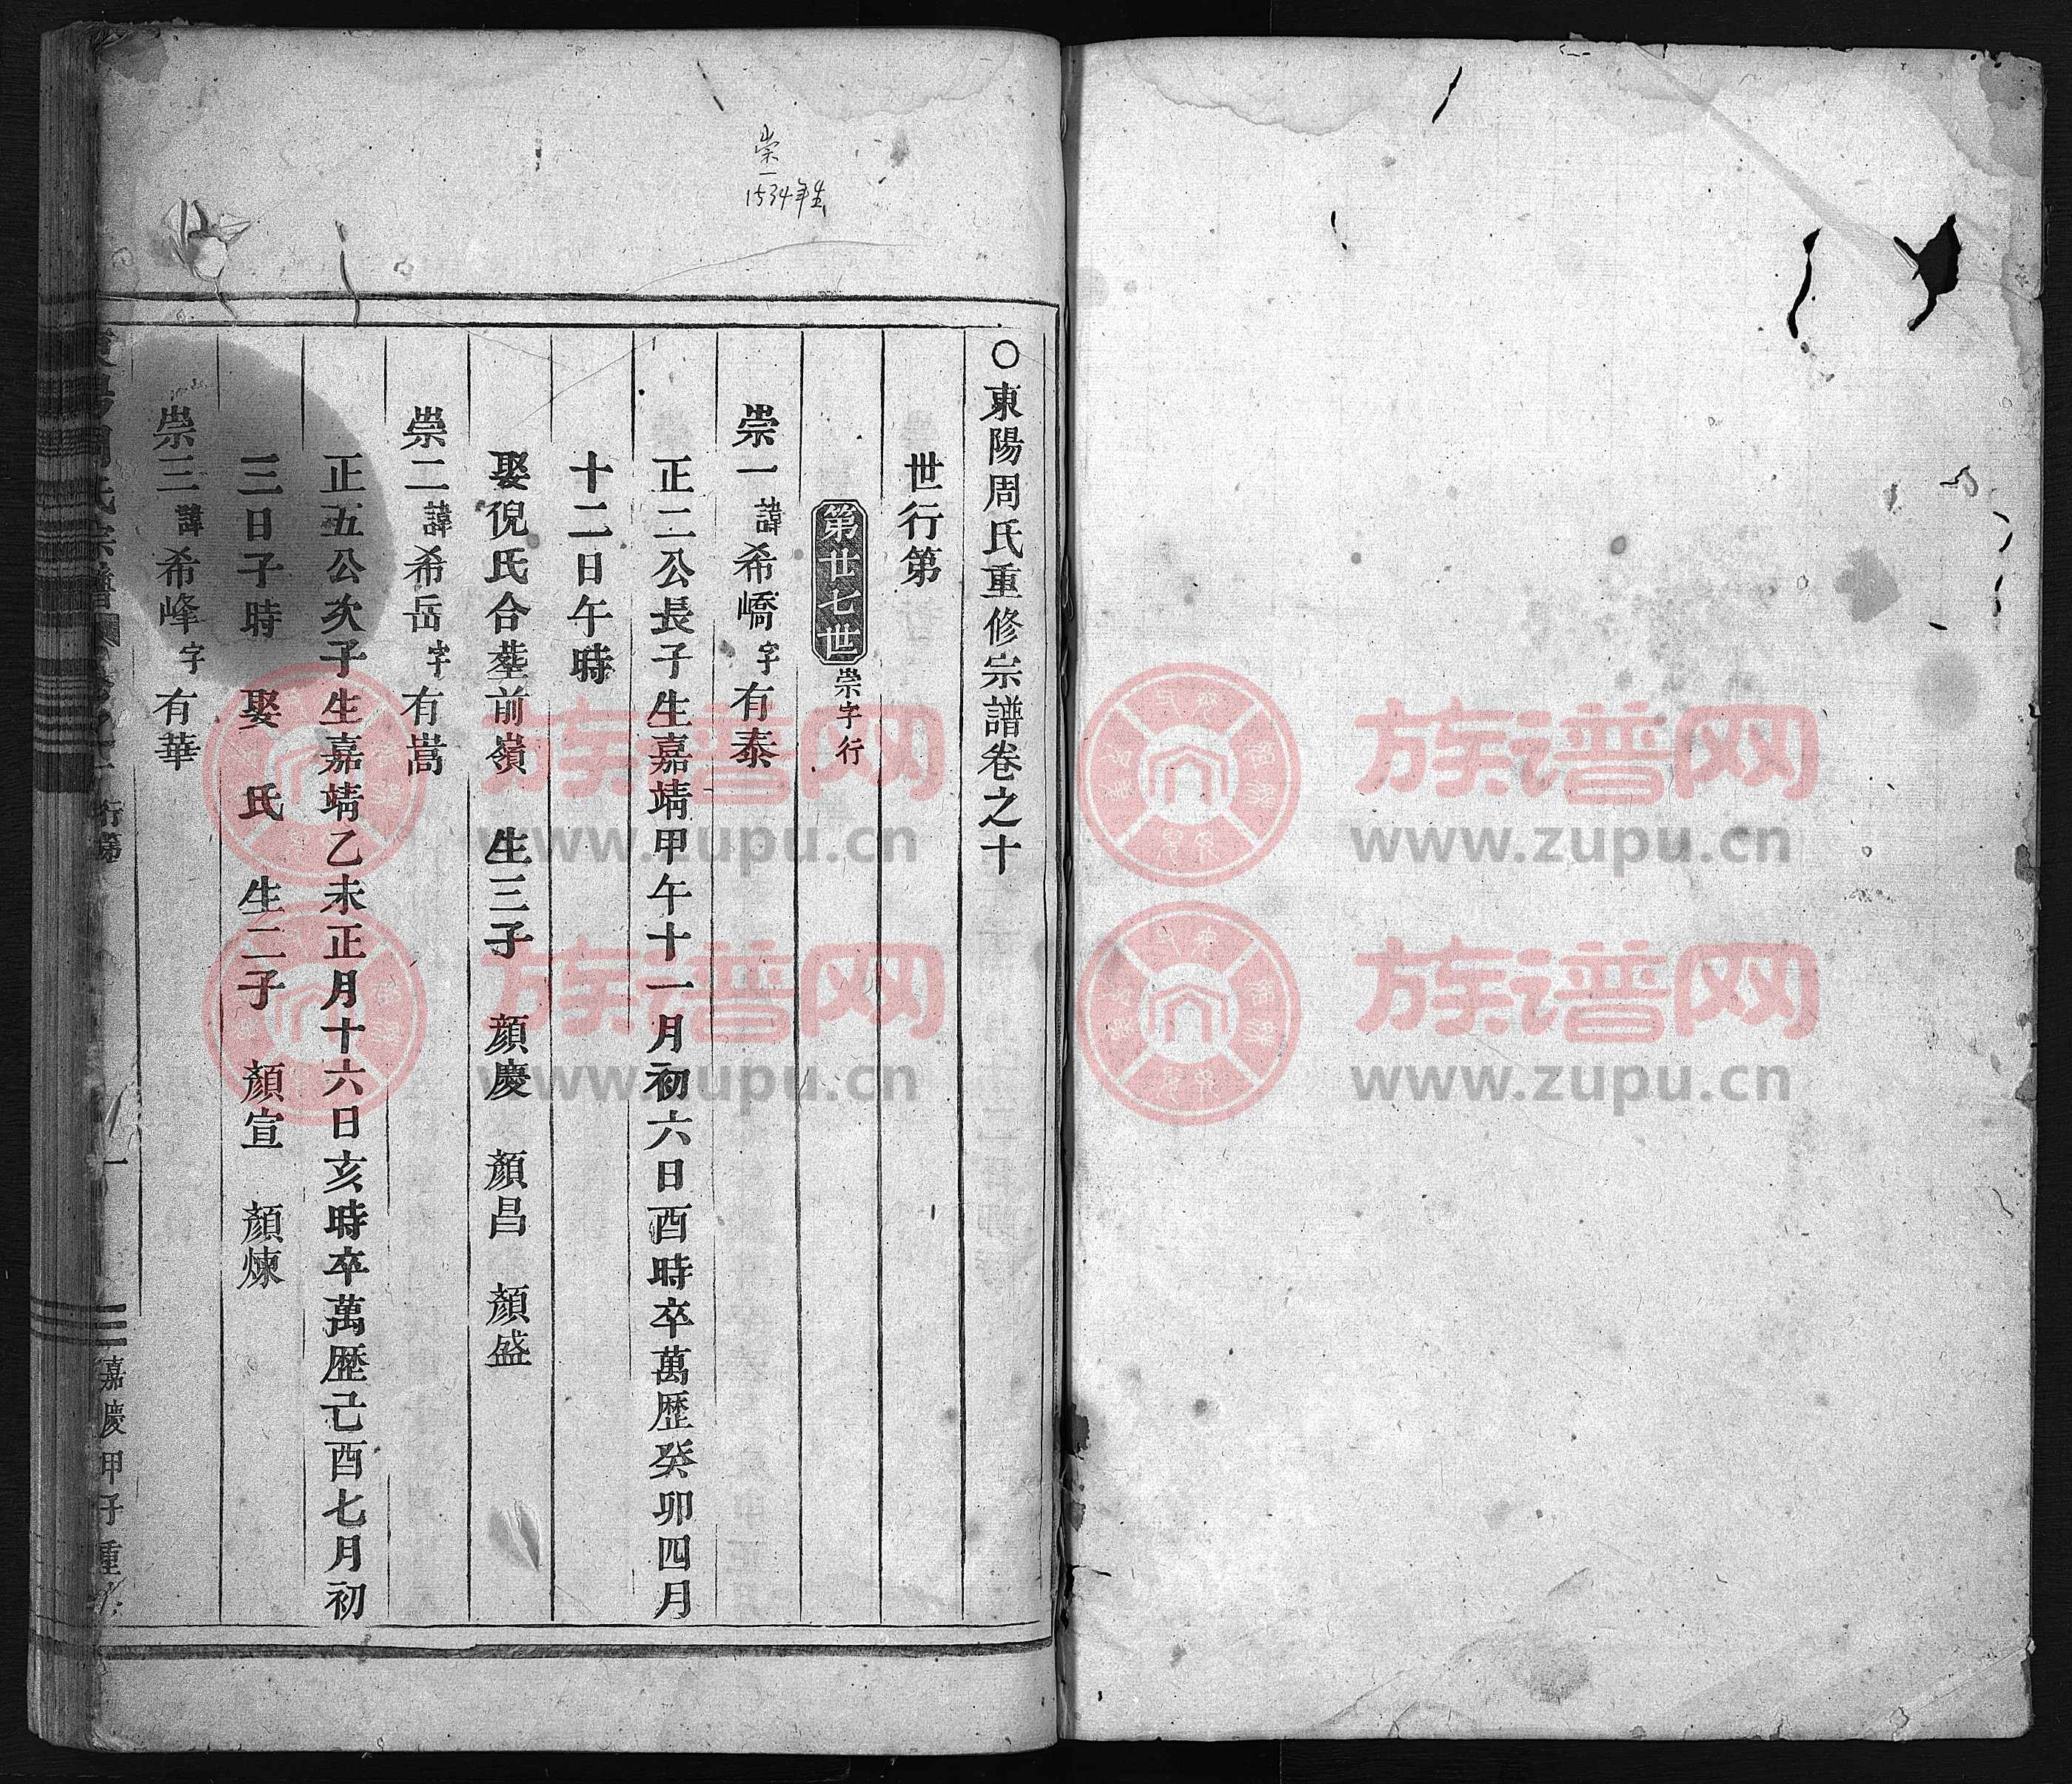 崇一
1534年生
○東陽周氏重修宗譜卷之十
世行第
第廿七世 崇字行
崇一 諱希嶠 字有泰
正二公長子生嘉靖甲午十一月初六日酉時卒萬歷癸卯四月
十二日午時
娶倪氏合塟前嶺 生三子 顏慶 顏昌 顏盛
崇二 諱希岳 字有嵩
正五公次子生嘉靖乙未正月十六日亥時卒萬歷己酉七月初
三日子時 娶 氏 生二子 顏宣 顏煉
崇三 諱希峰 字有華
行第 一 嘉慶甲子重
族谱网
www.zupu.cn
族谱网
www.zupu.cn
族谱网
www.zupu.cn
族谱网
www.zupu.cn